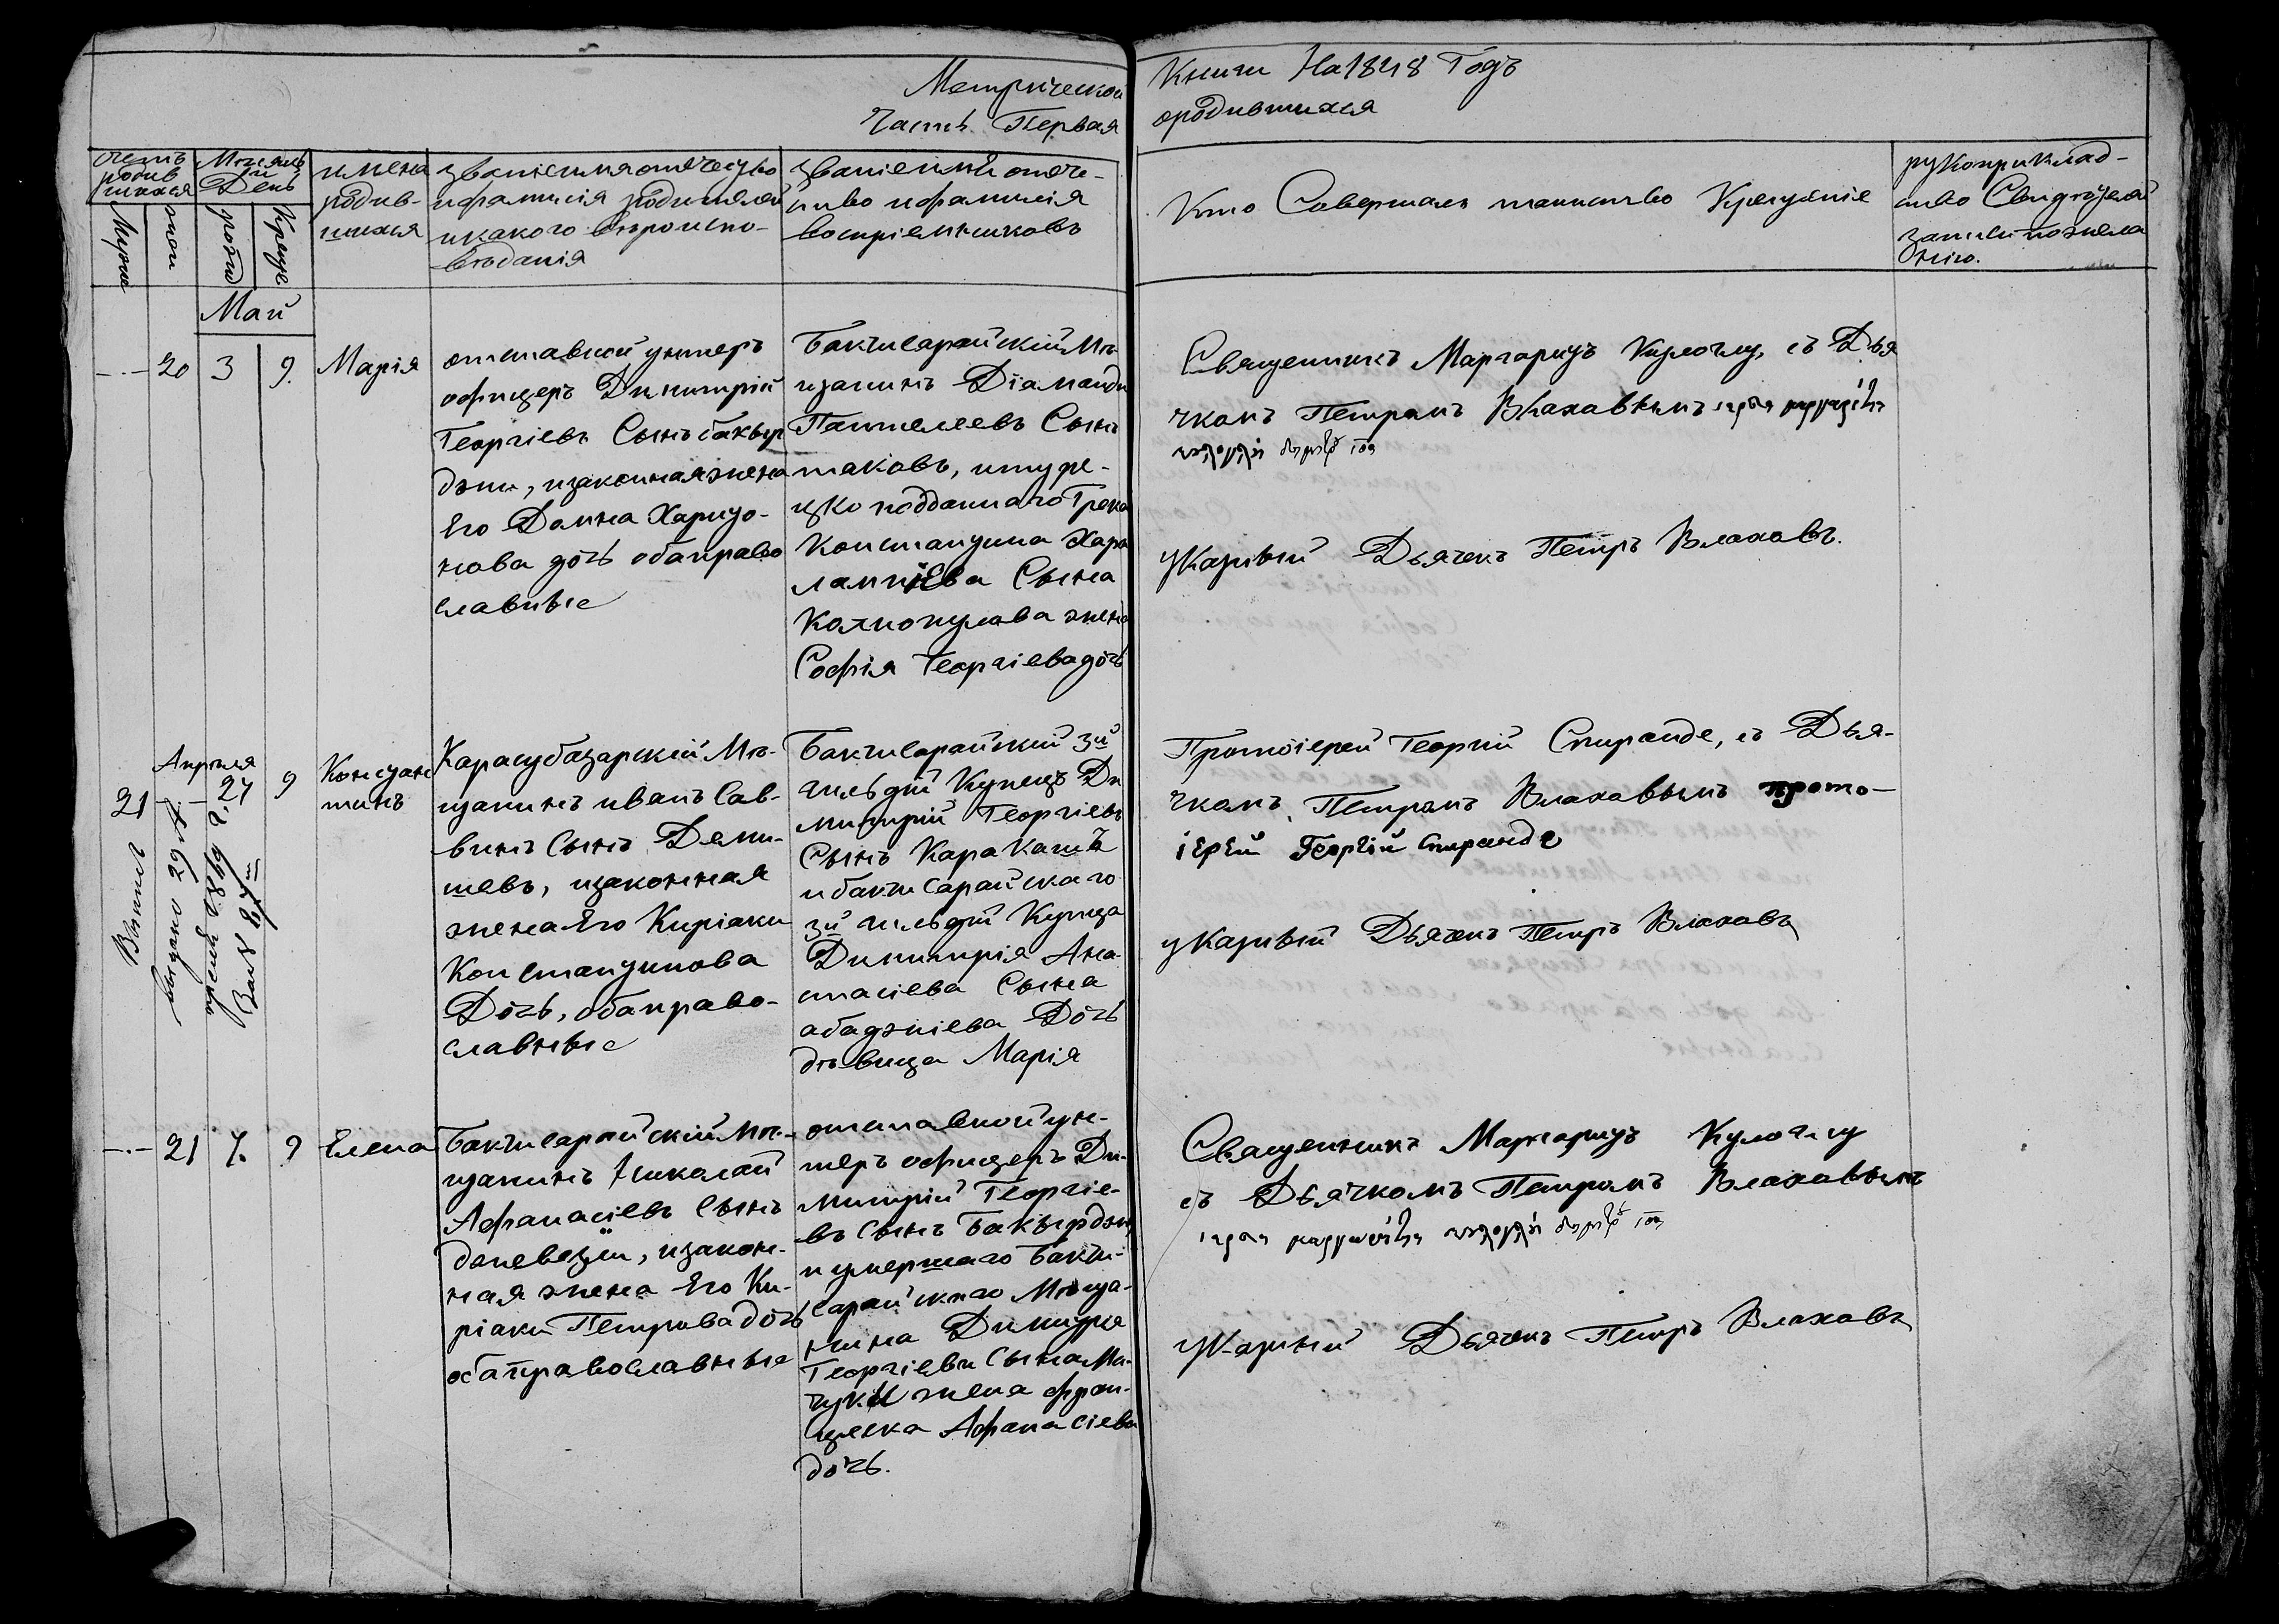 Метрической
Часть Первая
Книги На 1848 Годъ
ородившихся
счетъ
родив
шихся
Месяцъ
и
День
имена
родив-
шихся
званiе имя отечество
и фамилiя родителей
и какого веропспо-
ведaнiя
званiе имя отече-
ство и фамилiя
воспрiемниковъ
Кто Совершалъ таинство Крещенiе
рукоприклад-
ство Свидетелей
записи по жела
нiю.
Май
20 3 9.
Марiя
отставной унтеръ
офицеръ Димитрiй
Георгiевъ Сынъ бакыр
джи, и законная жена
Его Домна Харито-
нова дочь оба право
славные
Бакчисарайскiй Ме-
щанинъ Дiаманди
Пантелеевъ Сынъ
таковъ, и туре-
цко подданнаго Грека
Константина Хара
лампiева Сына
Калпопулова жена
Софiя Георгiева дочь
Священникъ Маргаритъ Кулоглу, съ Дья
чкомъ Петромъ Влаховымъ
указный Дьячекъ Петръ Влаховъ.
Апреля
21 27 9
Констан
тинъ
Карасубазарскiй Ме-
щанинъ иванъ Сав-
винъ Сынъ Деми-
шевъ, и законная
жена Его Кирiаки
Константинова
Дочь, оба право-
славные
Бакчисарайскiй 3й
гильдiи Купецъ Ди
митрiй Георгiевъ
Сынъ Кара Кашъ
и бакчисарайскаго
3й гильдiи Купца
Димитрiя Ана-
стасiева Сына
абаджiева Дочь
девица Марiя
Протоiерей Георгiй Спиранде, съ Дья-
чкомъ Петромъ Влаховымъ прото-
iерей Георгiй Спиранде
указный Дьячекъ Петръ Влаховъ
21 7. 9
Елена
Бакчисарайскiй Ме-
щанинъ Николай
Афанасiевъ Сынъ
деневезли, и закон-
ная жена Его Ки-
рiаки Петрова дочь
оба православные
отставной ун-
теръ офицеръ Ди-
митрiй Георгiе-
въ Сынъ Бакырджи
и умершаго Бакчи-
сарайскаго Меща-
нина Димитрiя
Георгiева Сына Ма-
чуки жена фран-
цеска Афанасiева
дочь.
Священникъ Маргаритъ Кулоглу
съ Дьячкомъ Петромъ Влаховымъ
указный Дьячекъ Петръ Влаховъ